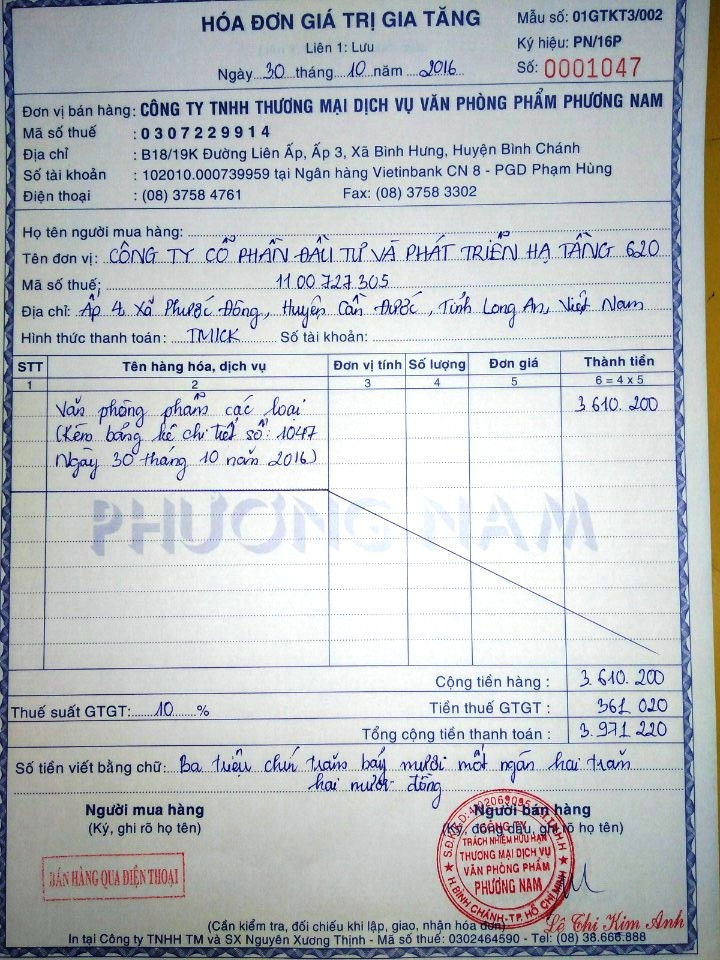 HÓA ĐƠN GIÁ TRỊ GIA TĂNG
Liên 1: Lưu
Ngày 30 tháng 10 năm 2016
Mẫu số: 01GTKT3/002
Ký hiệu: PN/16P
Số: 0001047
Đơn vị bán hàng: CÔNG TY TNHH THƯƠNG MẠI DỊCH VỤ VĂN PHÒNG PHẨM PHƯƠNG NAM
Mã số thuế : 0307229914
Địa chỉ : B18/19K Đường Liên Ấp, Ấp 3, Xã Bình Hưng, Huyện Bình Chánh
Số tài khoản : 102010.000739959 tại Ngân hàng Vietinbank CN 8 - PGD Phạm Hùng
Điện thoại : (08) 3758 4761 Fax: (08) 3758 3302
Họ tên người mua hàng:
Tên đơn vị: CÔNG TY CỔ PHẦN ĐẦU TƯ VÀ PHÁT TRIỂN HẠ TẦNG 620
Mã số thuế: 1100727305
Địa chỉ: Ấp 4 Xã Phước Đông, Huyện Cần Đước, Tỉnh Long An, Việt Nam
Hình thức thanh toán: TM/CK Số tài khoản:
STT Tên hàng hóa, dịch vụ Đơn vị tính Số lượng Đơn giá Thành tiền
1 2 3 4 5 6 = 4 x 5
Văn phòng phẩm các loại 3.610.200
(Kèm bảng kê chi tiết số: 1047
Ngày 30 tháng 10 năm 2016)
PHƯƠNG NAM
Cộng tiền hàng : 3.610.200
Thuế suất GTGT: 10 % Tiền thuế GTGT : 361 020
Tổng cộng tiền thanh toán : 3.971 220
Số tiền viết bằng chữ: Ba triệu chín trăm bảy mươi mốt ngàn hai trăm
hai mươi đồng
Người mua hàng
(Ký, ghi rõ họ tên)
Người bán hàng
(Ký, đóng dấu, ghi rõ họ tên)
BÁN HÀNG QUA ĐIỆN THOẠI
CÔNG TY
TRÁCH NHIỆM HỮU HẠN
THƯƠNG MẠI DỊCH VỤ
VĂN PHÒNG PHẨM
PHƯƠNG NAM
H.BÌNH CHÁNH-T.P HỒ CHÍ MINH
Lê Thị Kim Anh
(Cần kiểm tra, đối chiếu khi lập, giao, nhận hóa đơn)
In tại Công ty TNHH TM và SX Nguyên Xương Thịnh - Mã số thuế: 0302464590 - Tel: (08) 38.666.888